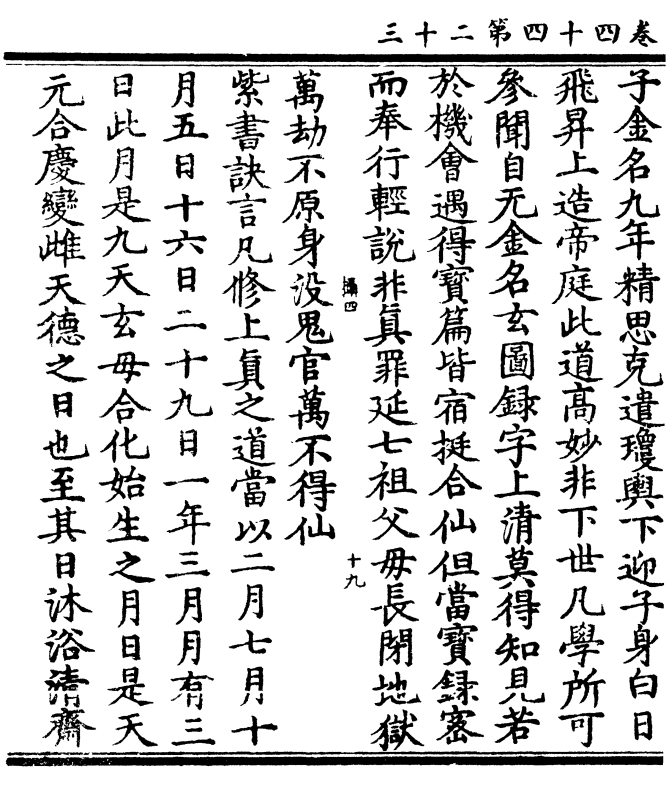 卷四十四第二十三
子金名九年精思克遣瓊輿下迎子身白日
飛昇上造帝庭此道高妙非下世凡學所可
參聞自无金名玄圖録字上清莫得知見若
於機會遇得寳篇皆宿挺合仙但當寳録宻
而奉行輕說非真罪延七祖父毋長閉地獄
攝四
十九
萬劫不原身没鬼官萬不得仙
紫書訣言凡修上真之道當以二月七月十
月五日十六日二十九日一年三月月有三
日此月是九天玄毋合化始生之月日是天
元合慶變雌天德之日也至其日沐浴清齋